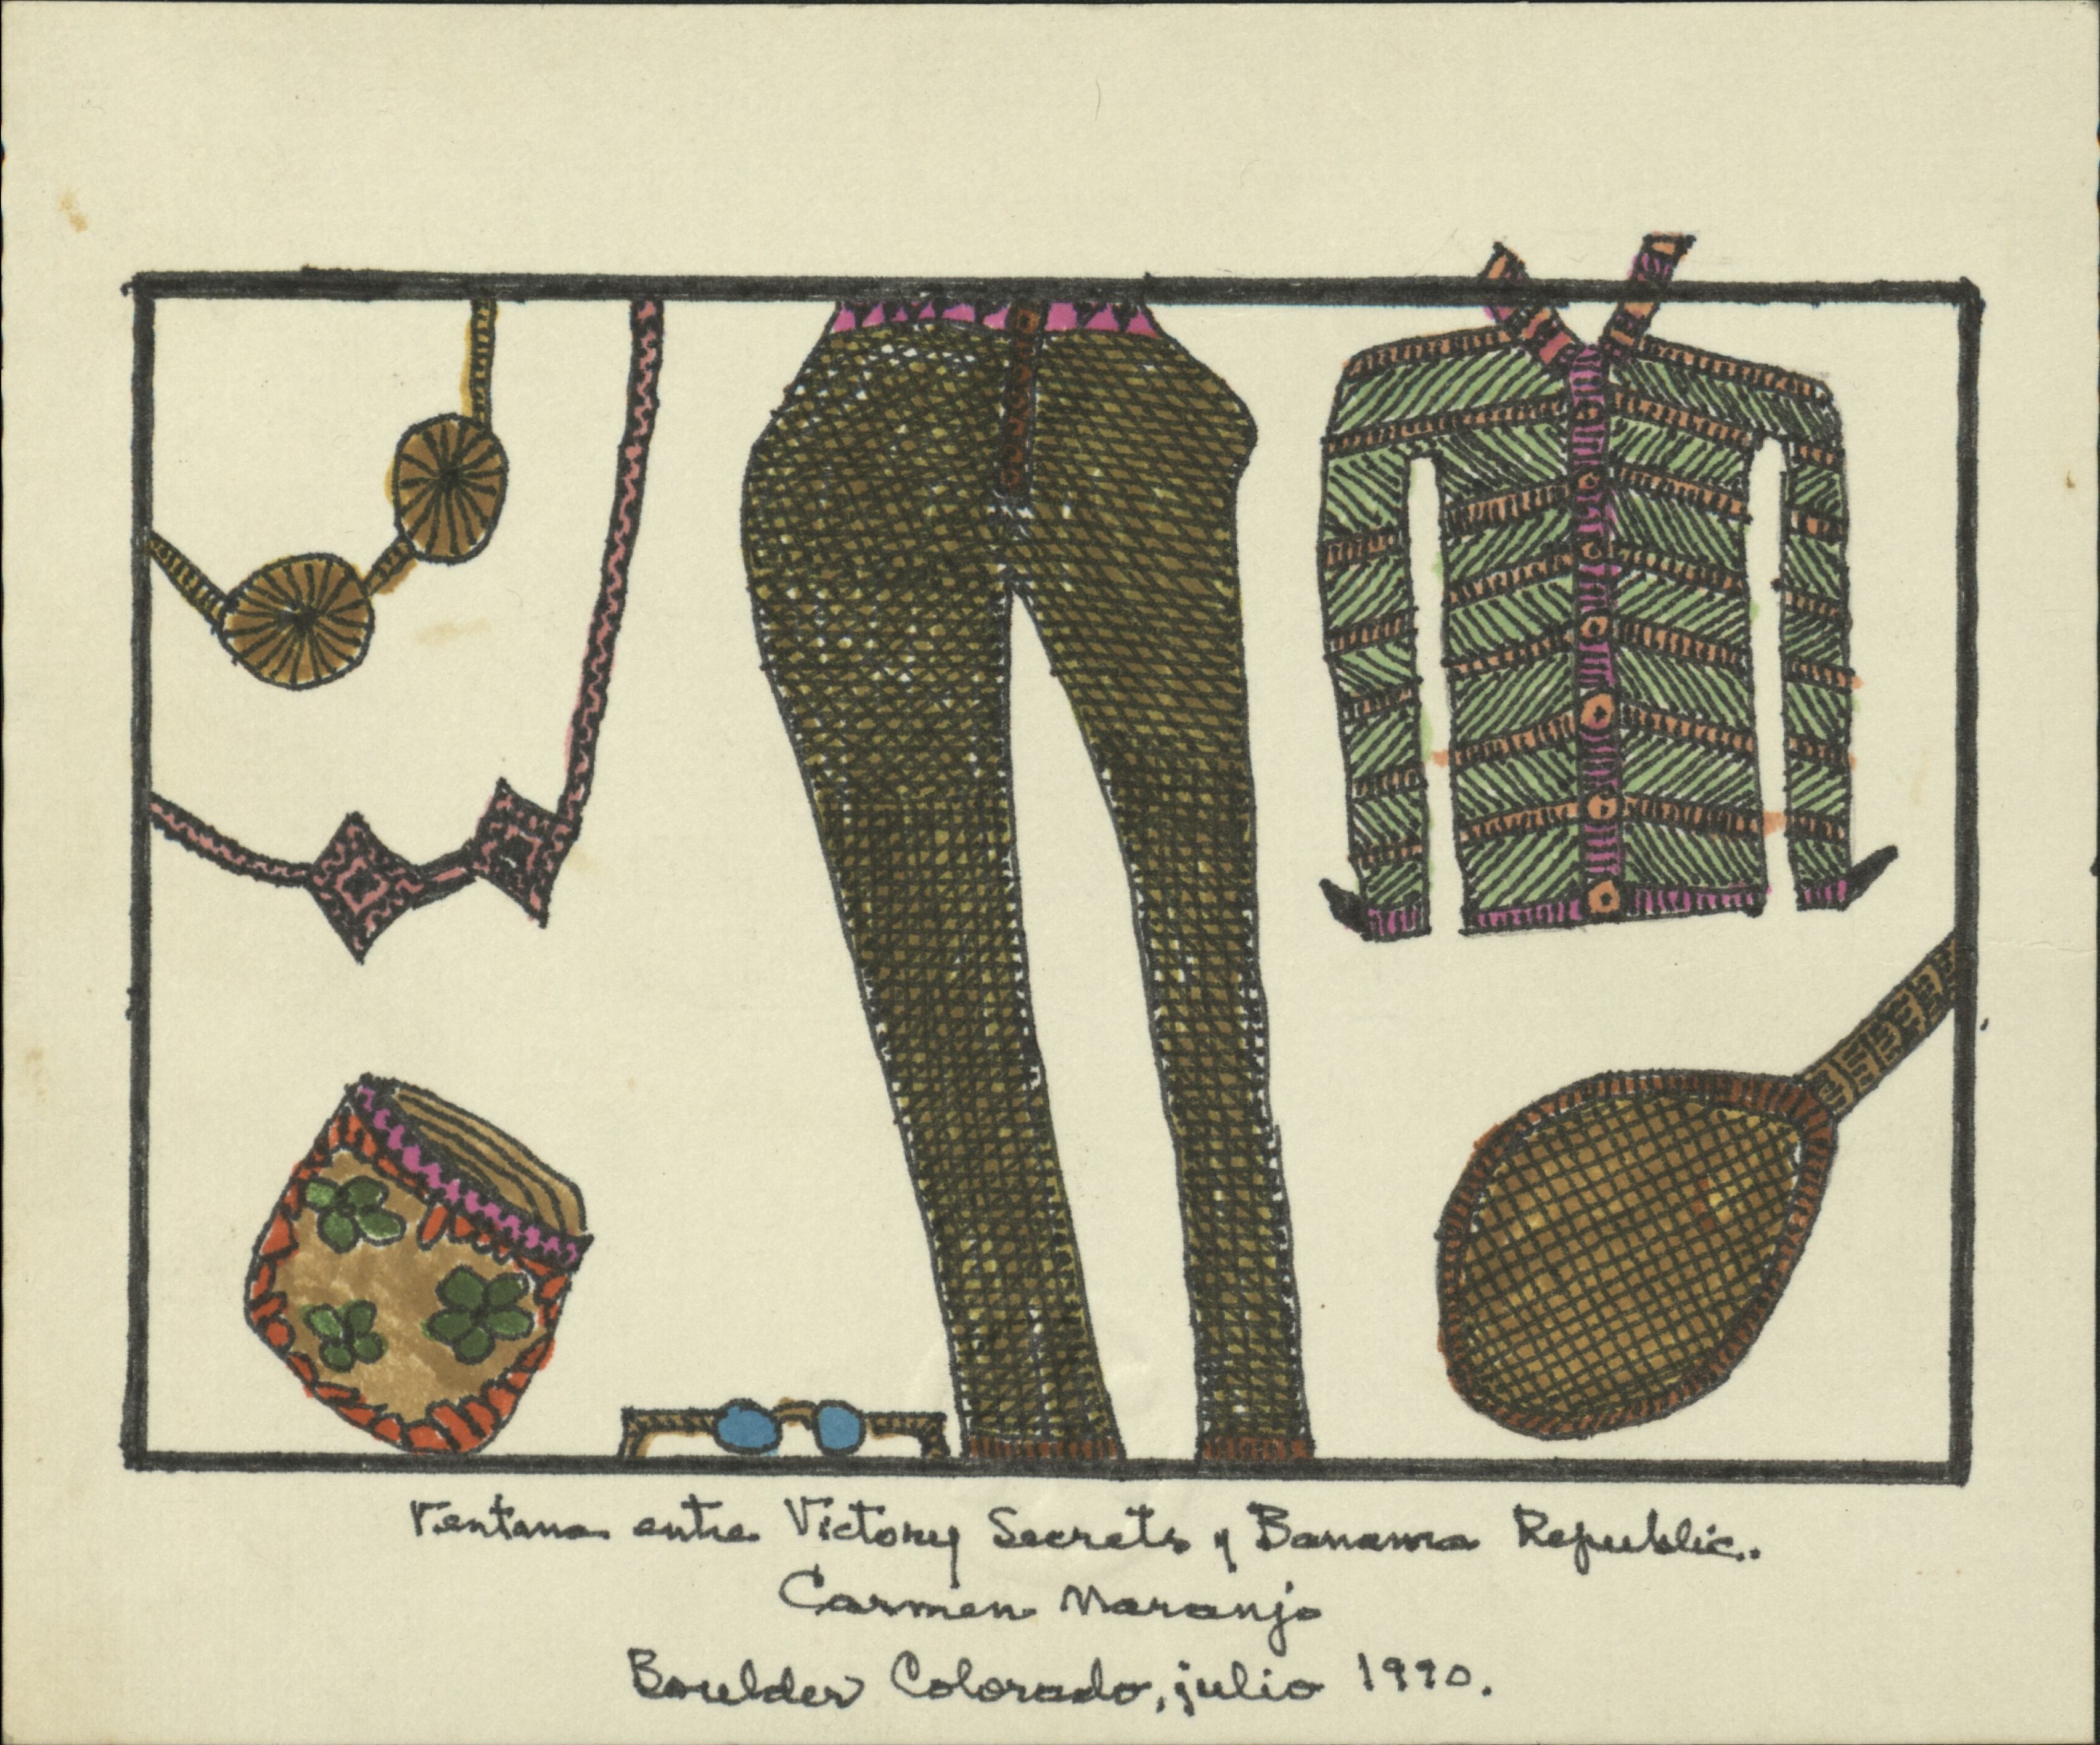 Ventana entre Victory Secrets y Banana Republic.
Carmen Naranjo
Boulder Colorado, julio 1990.